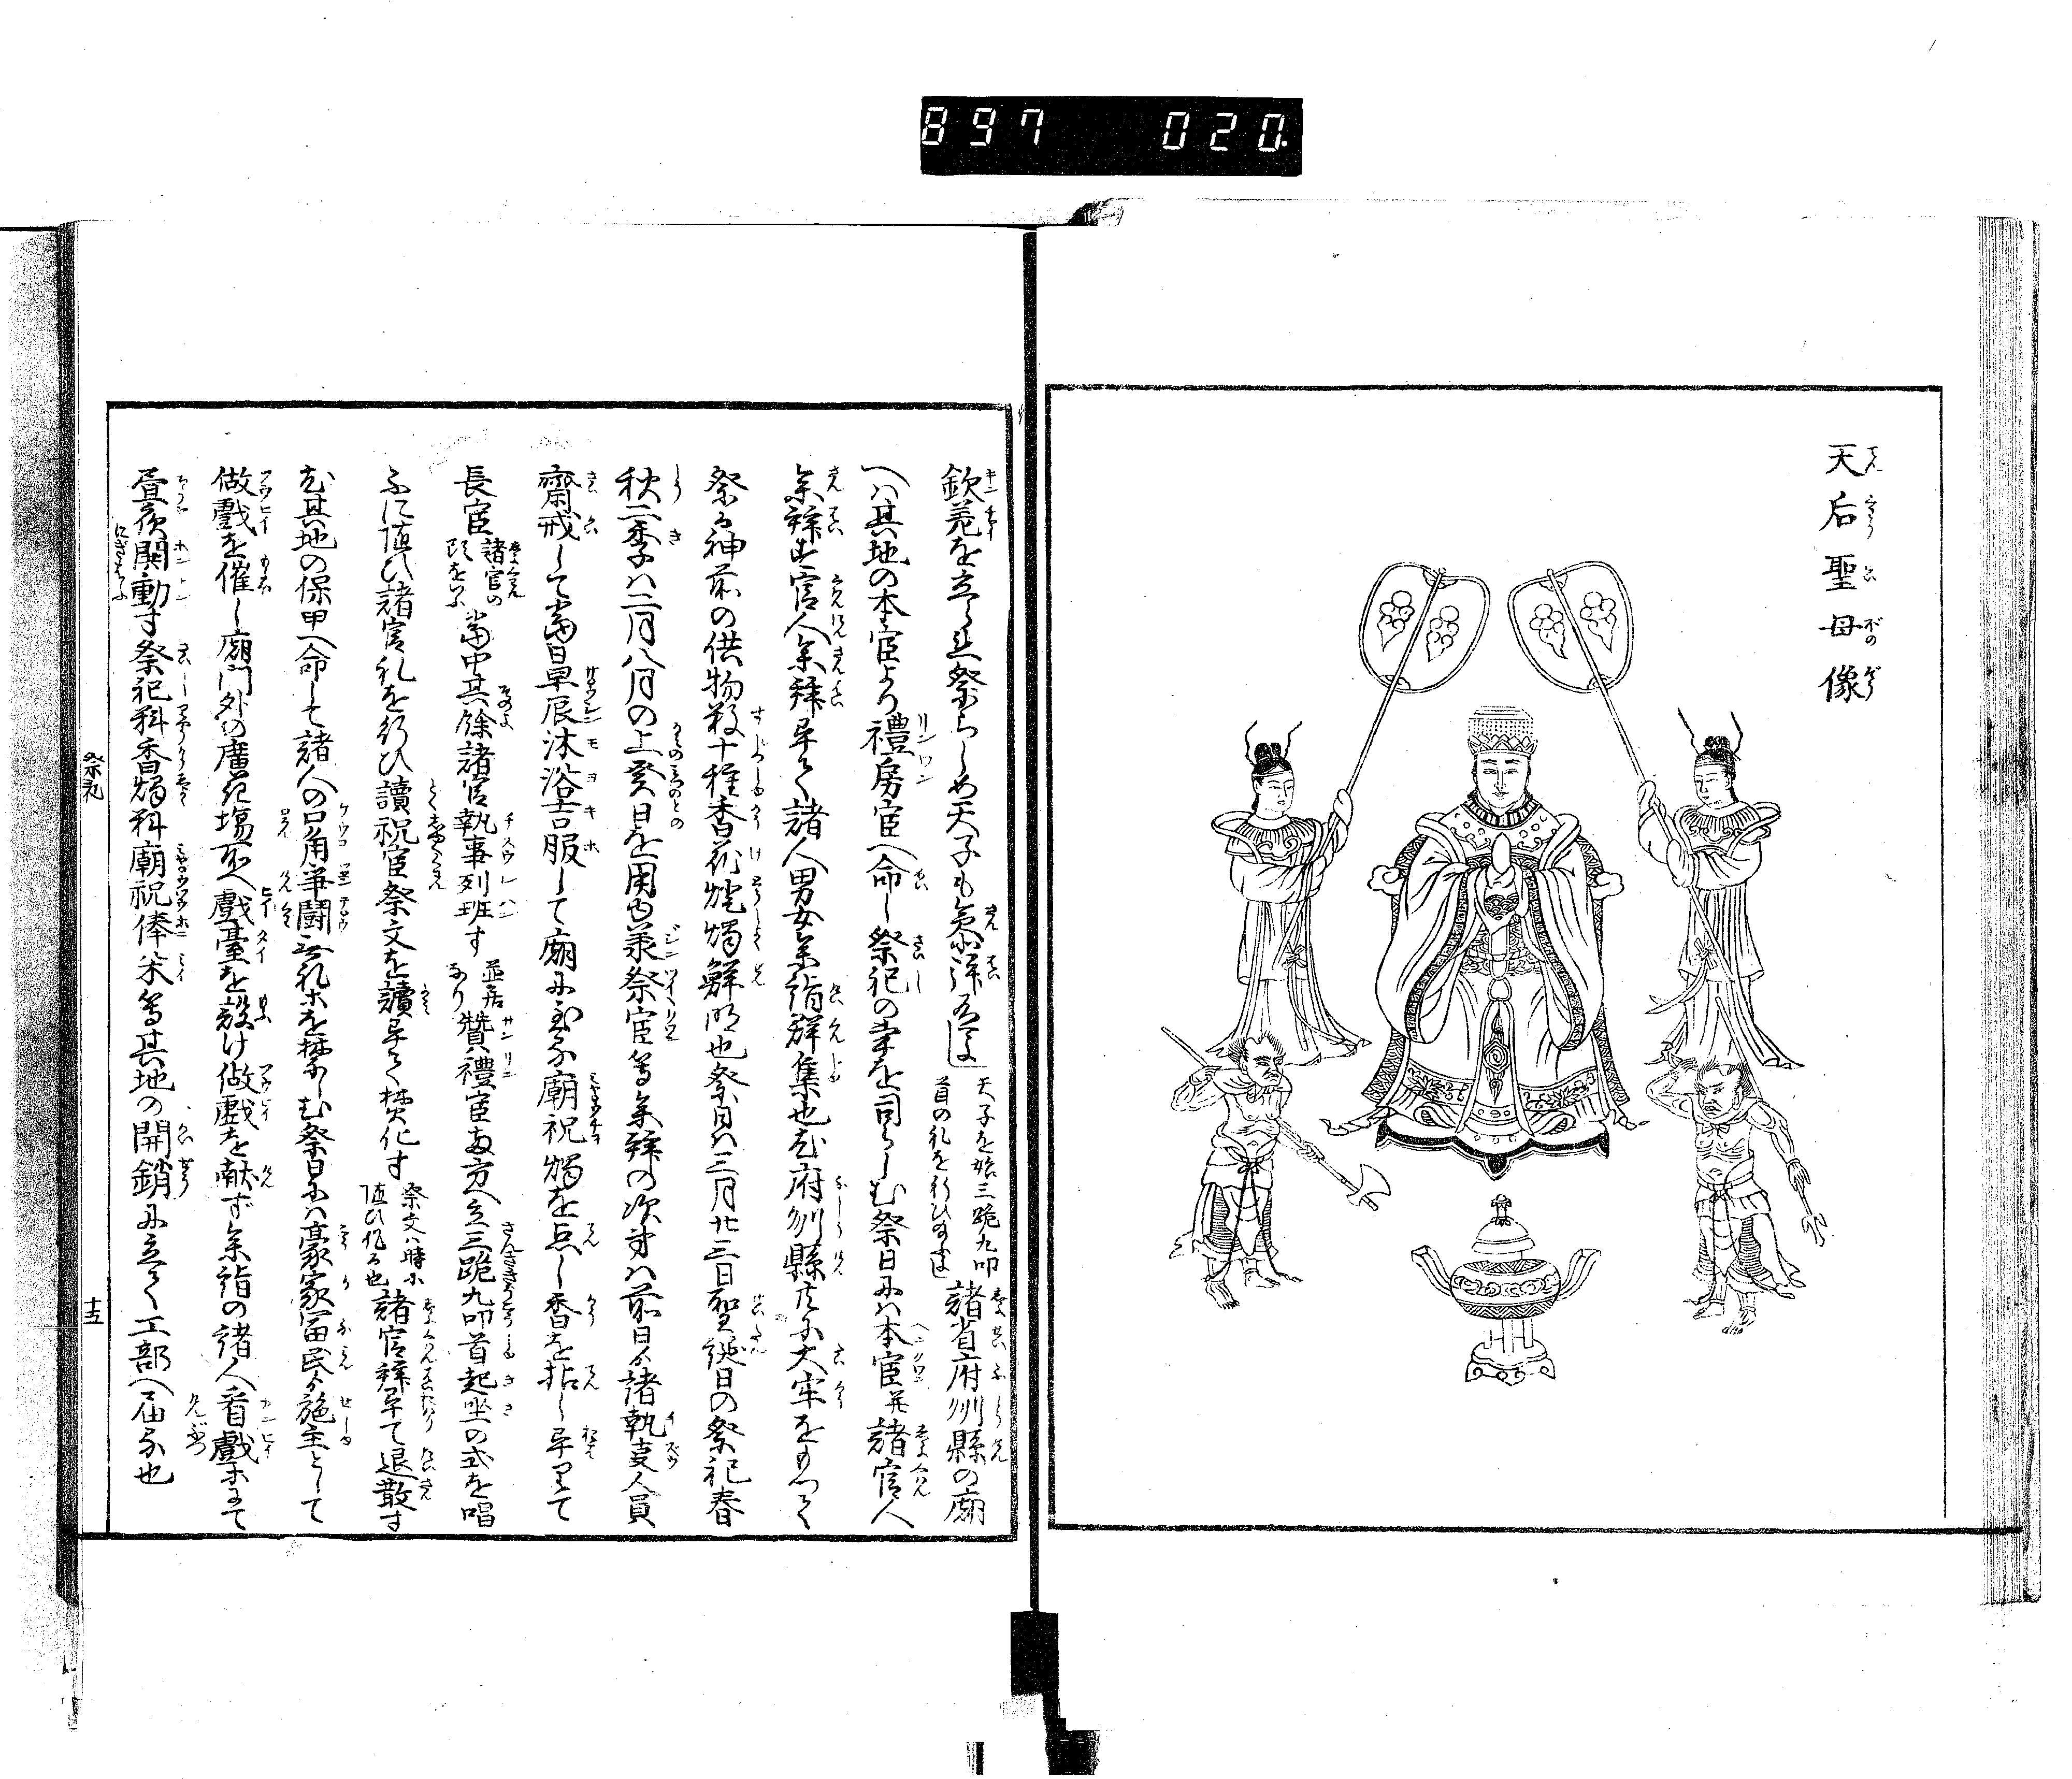 897 020
天后聖母像
欽差を立られ祭らしめ天子も参詣有よし 天子を始三跪九叩首の礼を行ひ給ふよし 諸省府州縣の廟
へハ其地の本官より禮房官へ命し祭祀の事を司らしむ祭日にハ本官并諸官人
参拜す官人参拜畢て諸人男女参詣群集也尤府州縣共に大牢をもつて
祭る神前の供物数十種香花燈燭鮮明也祭日ハ三月廿三日聖誕日の祭祀春
秋二季ハ二月八月の上癸日を用ゆ承祭官等参拜の次第ハ前日より諸執事人員
齋戒して當日早辰沐浴吉服して廟に至る廟祝燭を点し香を拈し畢りて
長官 諸官の頭をいふ 當中其餘諸官執事列班す 並居なり 贊禮官両方へ立三跪九叩首起坐の式を唱
ふに随ひ諸官礼を行ひ讀祝官祭文を讀畢て焚化す 祭文ハ時に随ひ作る也 諸官拜畢て退散す
尤其地の保甲へ命して諸人の口角爭鬪無礼等を禁しむ祭日にハ豪家冨民より施主として
做戲を催し廟門外の廣き塲所へ戲臺を設け做戲を献ず参詣の諸人看戲等にて
晝夜鬨動す祭祀料香燭料廟祝俸米等其地の開銷に立て工部へ届る也
祭礼
十五